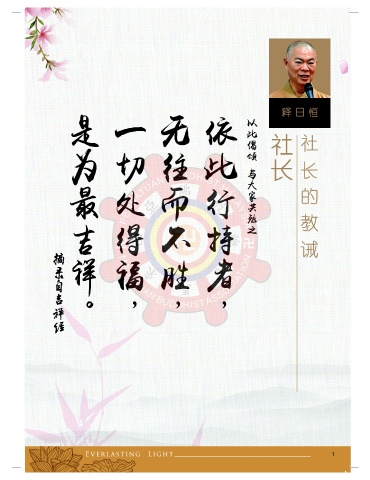 社长的教诫
释日恒
社长
以此偈颂 与大家共勉之
依此行持者，
无往而不胜，
一切处得福，
是为最吉祥。
摘录自吉祥经
BUDDHIST ASSOCIATION
EVERLASTING LIGHT
1